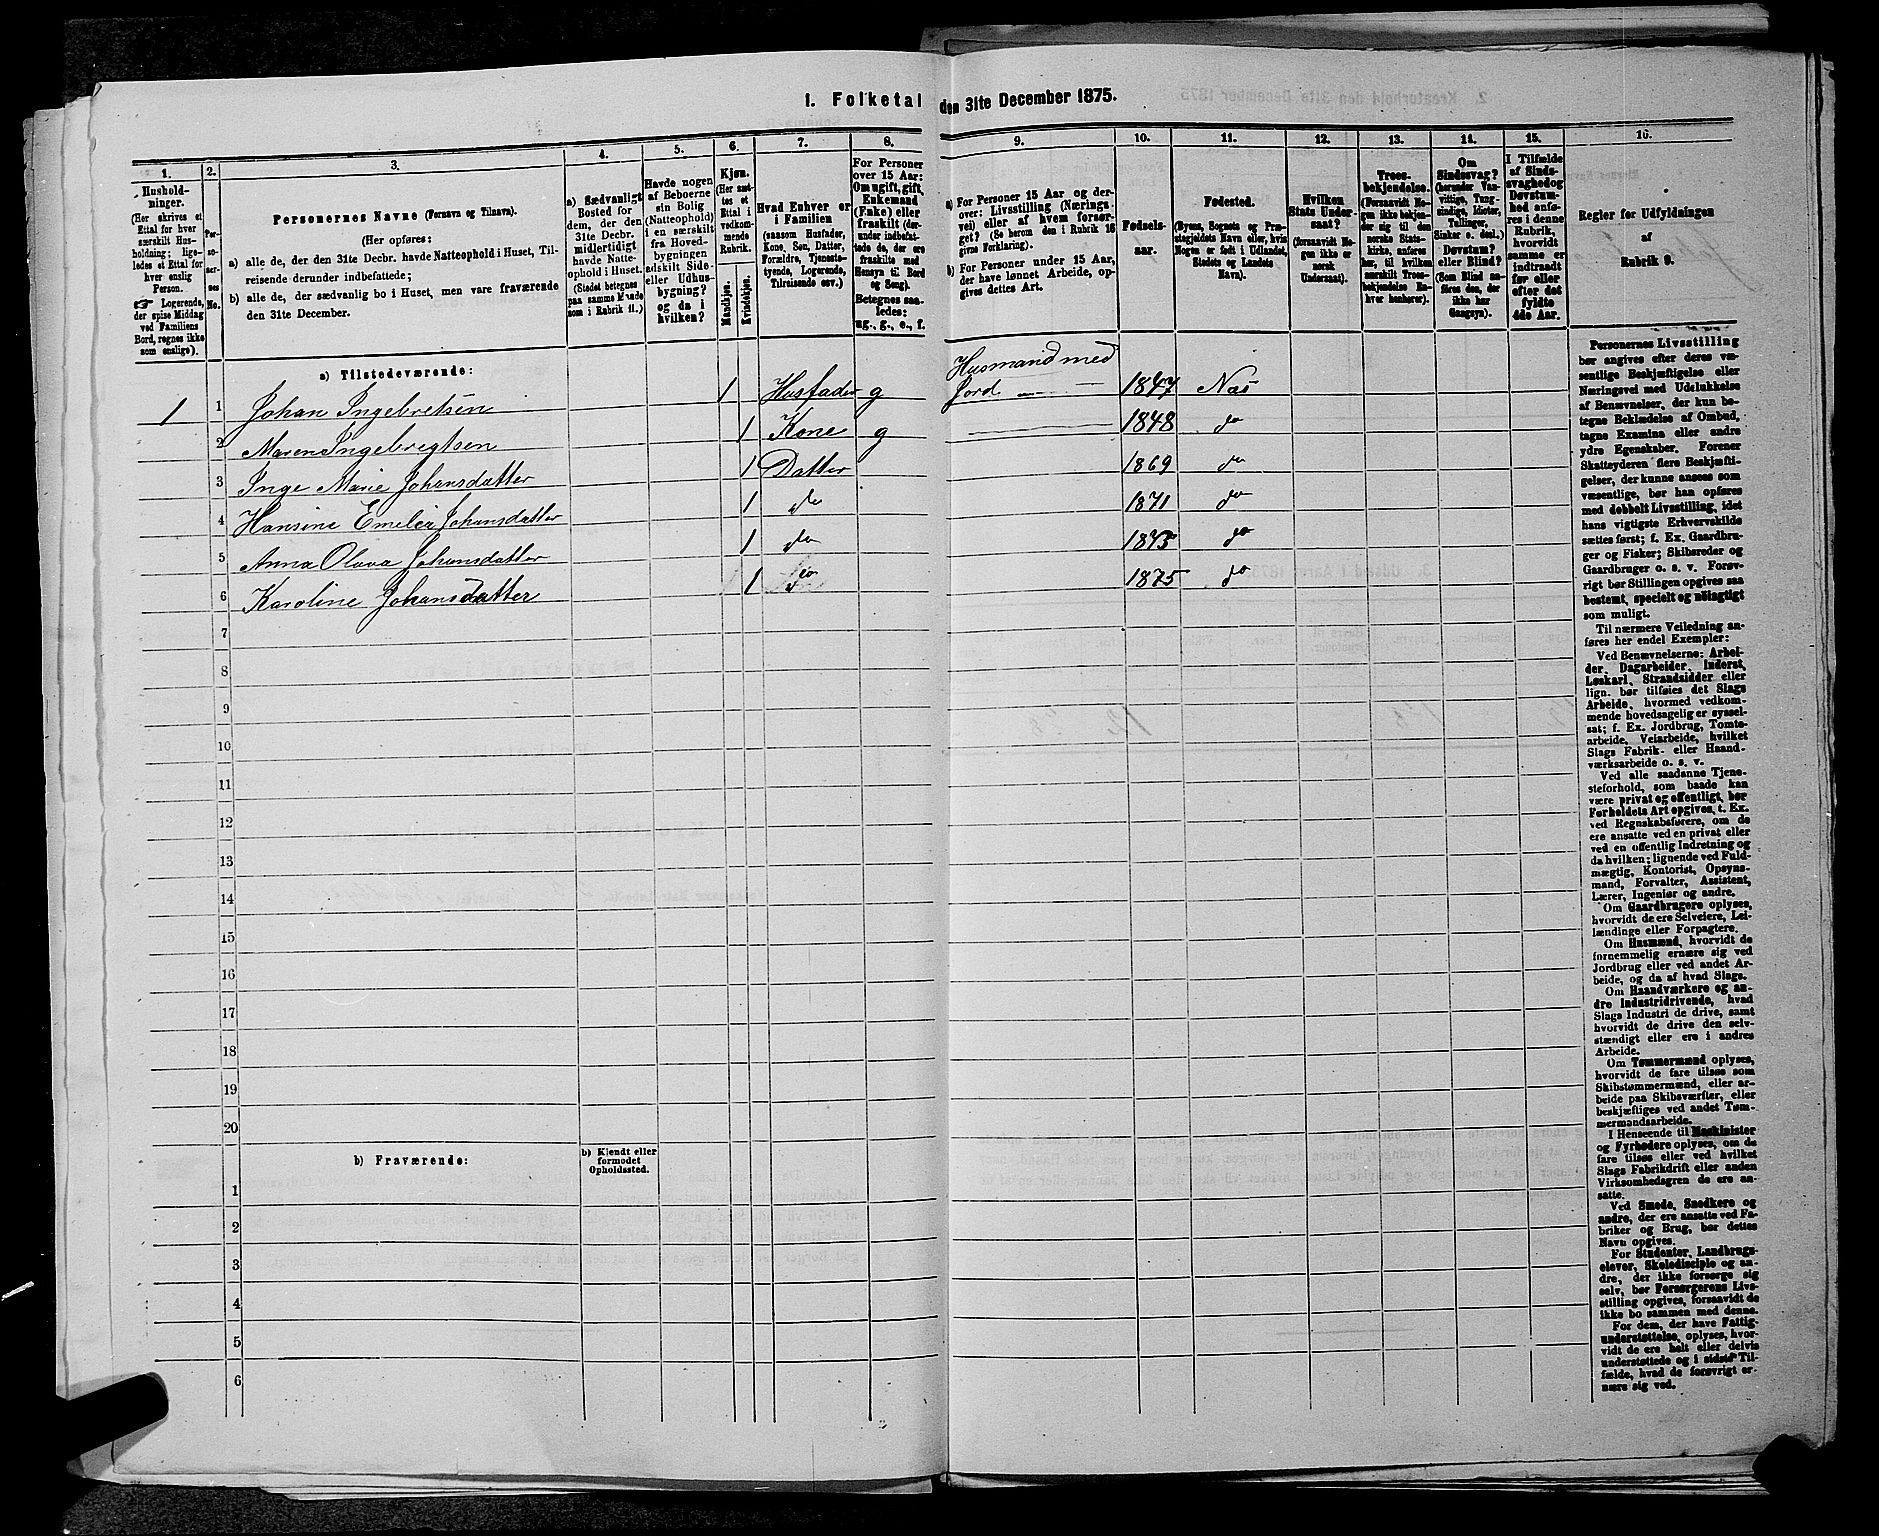 1. Folketal den 31te December 1875.
1. 2. 3. 4. 5. 6. 7. 8. 9. 10. 11. 12. 13. 14. 15. 16.
Hushold-
ninger.
(Her skrives et
Ettal for hver
særskilt Hus-
holdning; lige-
ledes et Ettal for
hver enslig
Person.
☞ Logerende,
der spise Middag
ved Familiens
Bord, regnes ikke
som enslige).
Per-
so-
ner-
nes
No.
Personernes Navne (Fornavn og Tilnavn).
(Her opføres:
a) alle de, der den 31te Decbr. havde Natteophold i Huset, Til-
reisende derunder indbefattede;
b) alle de, der sædvanlig bo i Huset, men vare fraværende
den 31te December.
a) Sædvanligt
Bosted for
dem, der den
31te Decbr.
midlertidigt
havde Natte-
ophold i Huset.
(Stedet betegnes
paa samme Maade
som i Rubrik 11.)
Havde nogen
af Beboerne
sin Bolig
(Natteophold)
i en særskilt
fra Hoved-
bygningen
adskilt Side-
eller Udhus-
bygning?
og da i
hvilken?
Kjøn.
(Her sæt-
tes et
Ettal i
vedkom-
mende
Rubrik.
Mandkjøn.
Kvindekjøn.
Hvad Enhver er
i Familien
(saasom Husfader,
Kone, Søn, Datter,
Forældre, Tjeneste-
tyende, Logerende,
Tilreisende osv.)
For Personer
over 15 Aar:
Om ugift, gift,
Enkemand
(Enke) eller
fraskilt (der-
under indbefat-
tede de, der ere
fraskilte med
Hensyn til Bord
og Seng).
Betegnes saa-
ledes:
ug., g., e., f.
a) For Personer 15 Aar og der-
over: Livsstilling (Nærings-
vei) eller af hvem forsør-
get? (Se herom den i Rubrik 16
givne Forklaring).
b) For Personer under 15 Aar,
der have lønnet Arbeide, op-
gives dettes Art.
Fødsels-
aar.
Fødested.
(Byens, Sognets og Præ-
stegjeldets Navn eller, hvis
Nogen er født i Udlandet,
Stedets og Landets
Navn).
Hvilken
Stats Under-
saat?
(forsaavidt No-
gen ikke er
norsk
Undersaat).
Troes-
bekjendelse.
(Forsaavidt No-
gen ikke bekjen-
der sig til den
norske Stats-
kirke, anføres
her, til hvilken
særskilt Troes-
bekjendelse En-
hver henhører).
Om
Sindssvag?
(herunder Van-
vittige, Tung-
sindige, Idioter,
Tullinger,
Sinker o. desl.)
Døvstum?
eller Blind?
(Som Blind an-
føres den, der
ikke har
Gangsyn).
I Tilfælde
af Sinds-
svaghed og
Døvstum-
hed anfø-
res i denne
Rubrik,
hvorvidt
samme er
indtraadt
før eller
efter det
fyldte
4de Aar.
Regler for Udfyldningen
af
Rubrik 9.
a) Tilstedeværende:
Husmand med
1 1 Johan Ingebretsen 1 Husfader g Jord 1847 Næs
2 Maren Ingebrigtsen 1 Kone g 1848 do
3 Inge Marie Johansdatter 1 Datter 1869 do
4 Hansine Emelie Johansdatter 1 do 1871 do
5 Anna Olava Johansdatter 1 do 1873 do
6 Karoline Johansdatter 1 do 1875 do
7
8
9
10
11
12
13
14
15
16
17
18
19
20
b) Fraværende:
b) Kjendt eller
formodet
Opholdssted.
1
2
3
4
5
6
Personernes Livsstilling
bør angives efter deres væ-
sentlige Beskjæftigelse eller
Næringsvei med Udelukkelse
af Benævnelser, der kun be-
tegne Beklædelse af Ombud,
tagne Examina eller andre
ydre Egenskaber. Forener
Skatteyderen flere Beskjæfti-
gelser, der kunne ansees som
væsentlige, bør han opføres
med dobbelt Livsstilling, idet
hans vigtigste Erhvervskilde
sættes først; f. Ex. Gaardbru-
ger og Fisker; Skibsreder og
Gaardbruger o. s. v. Forøv-
rigt bør Stillingen opgives saa
bestemt, specielt og nøiagtigt
som muligt.
Til nærmere Veiledning an-
føres her endel Exempler:
Ved Benævnelserne: Arbei-
der, Dagarbeider, Inderst,
Løskarl, Strandsidder eller
lign. bør tilføies det Slags
Arbeide, hvormed vedkom-
mende hovedsagelig er syssel-
sat; f. Ex. Jordbrug, Tomte-
arbeide, Veiarbeide, hvilket
Slags Fabrik- eller Haand-
værksarbeide o. s. v.
Ved alle saadanne Tjene-
steforhold, som baade kan
være privat og offentligt, bør
Forholdets Art opgives, t. Ex.
ved Regnskabsførere, om de
ere ansatte ved en privat eller
ved en offentlig Indretning og
da hvilken; lignende ved Fuld-
mægtig, Kontorist, Opsyns-
mand, Forvalter, Assistent,
Lærer, Ingeniør og andre.
Om Gaardbrugere oplyses,
hvorvidt de ere Selveiere, Lei-
lændinge eller Forpagtere.
Om Husmænd, hvorvidt de
fornemmelig ernære sig ved
Jordbrug eller ved andet Ar-
beide, og da af hvad Slags.
Om Haandværkere og an-
dre Industridrivende, hvad
Slags Industri de drive, samt
hvorvidt de drive den selv-
stændigt eller ere i andres
Arbeide.
Om Tømmermænd oplyses,
hvorvidt de fare tilsøs som
Skibstømmermænd, eller ar-
beide paa Skibsværfter, eller
beskjæftiges ved andet Tøm-
mermandsarbeide.
I Henseende til Maskinister
og Fyrbødere oplyses, om de
fare tilsøs eller ved hvilket
Slags Fabrikdrift eller anden
Virksomhedsgren de ere an-
satte.
Ved Smede, Snedkere og
andre, der ere ansatte ved Fa-
briker og Brug, bør dettes
Navn opgives.
For Studenter, Landbrugs-
elever, Skoledisciple og an-
dre, der ikke forsørge sig
selv, bør Forsørgerens Livs-
stilling opgives, forsaavidt de
ikke bo sammen med denne.
For dem, der have Fattig-
understøttelse, oplyses, hvor-
vidt de ere helt eller delvis
understøttede og i sidste Til-
fælde, hvad de forøvrigt er-
nære sig ved.